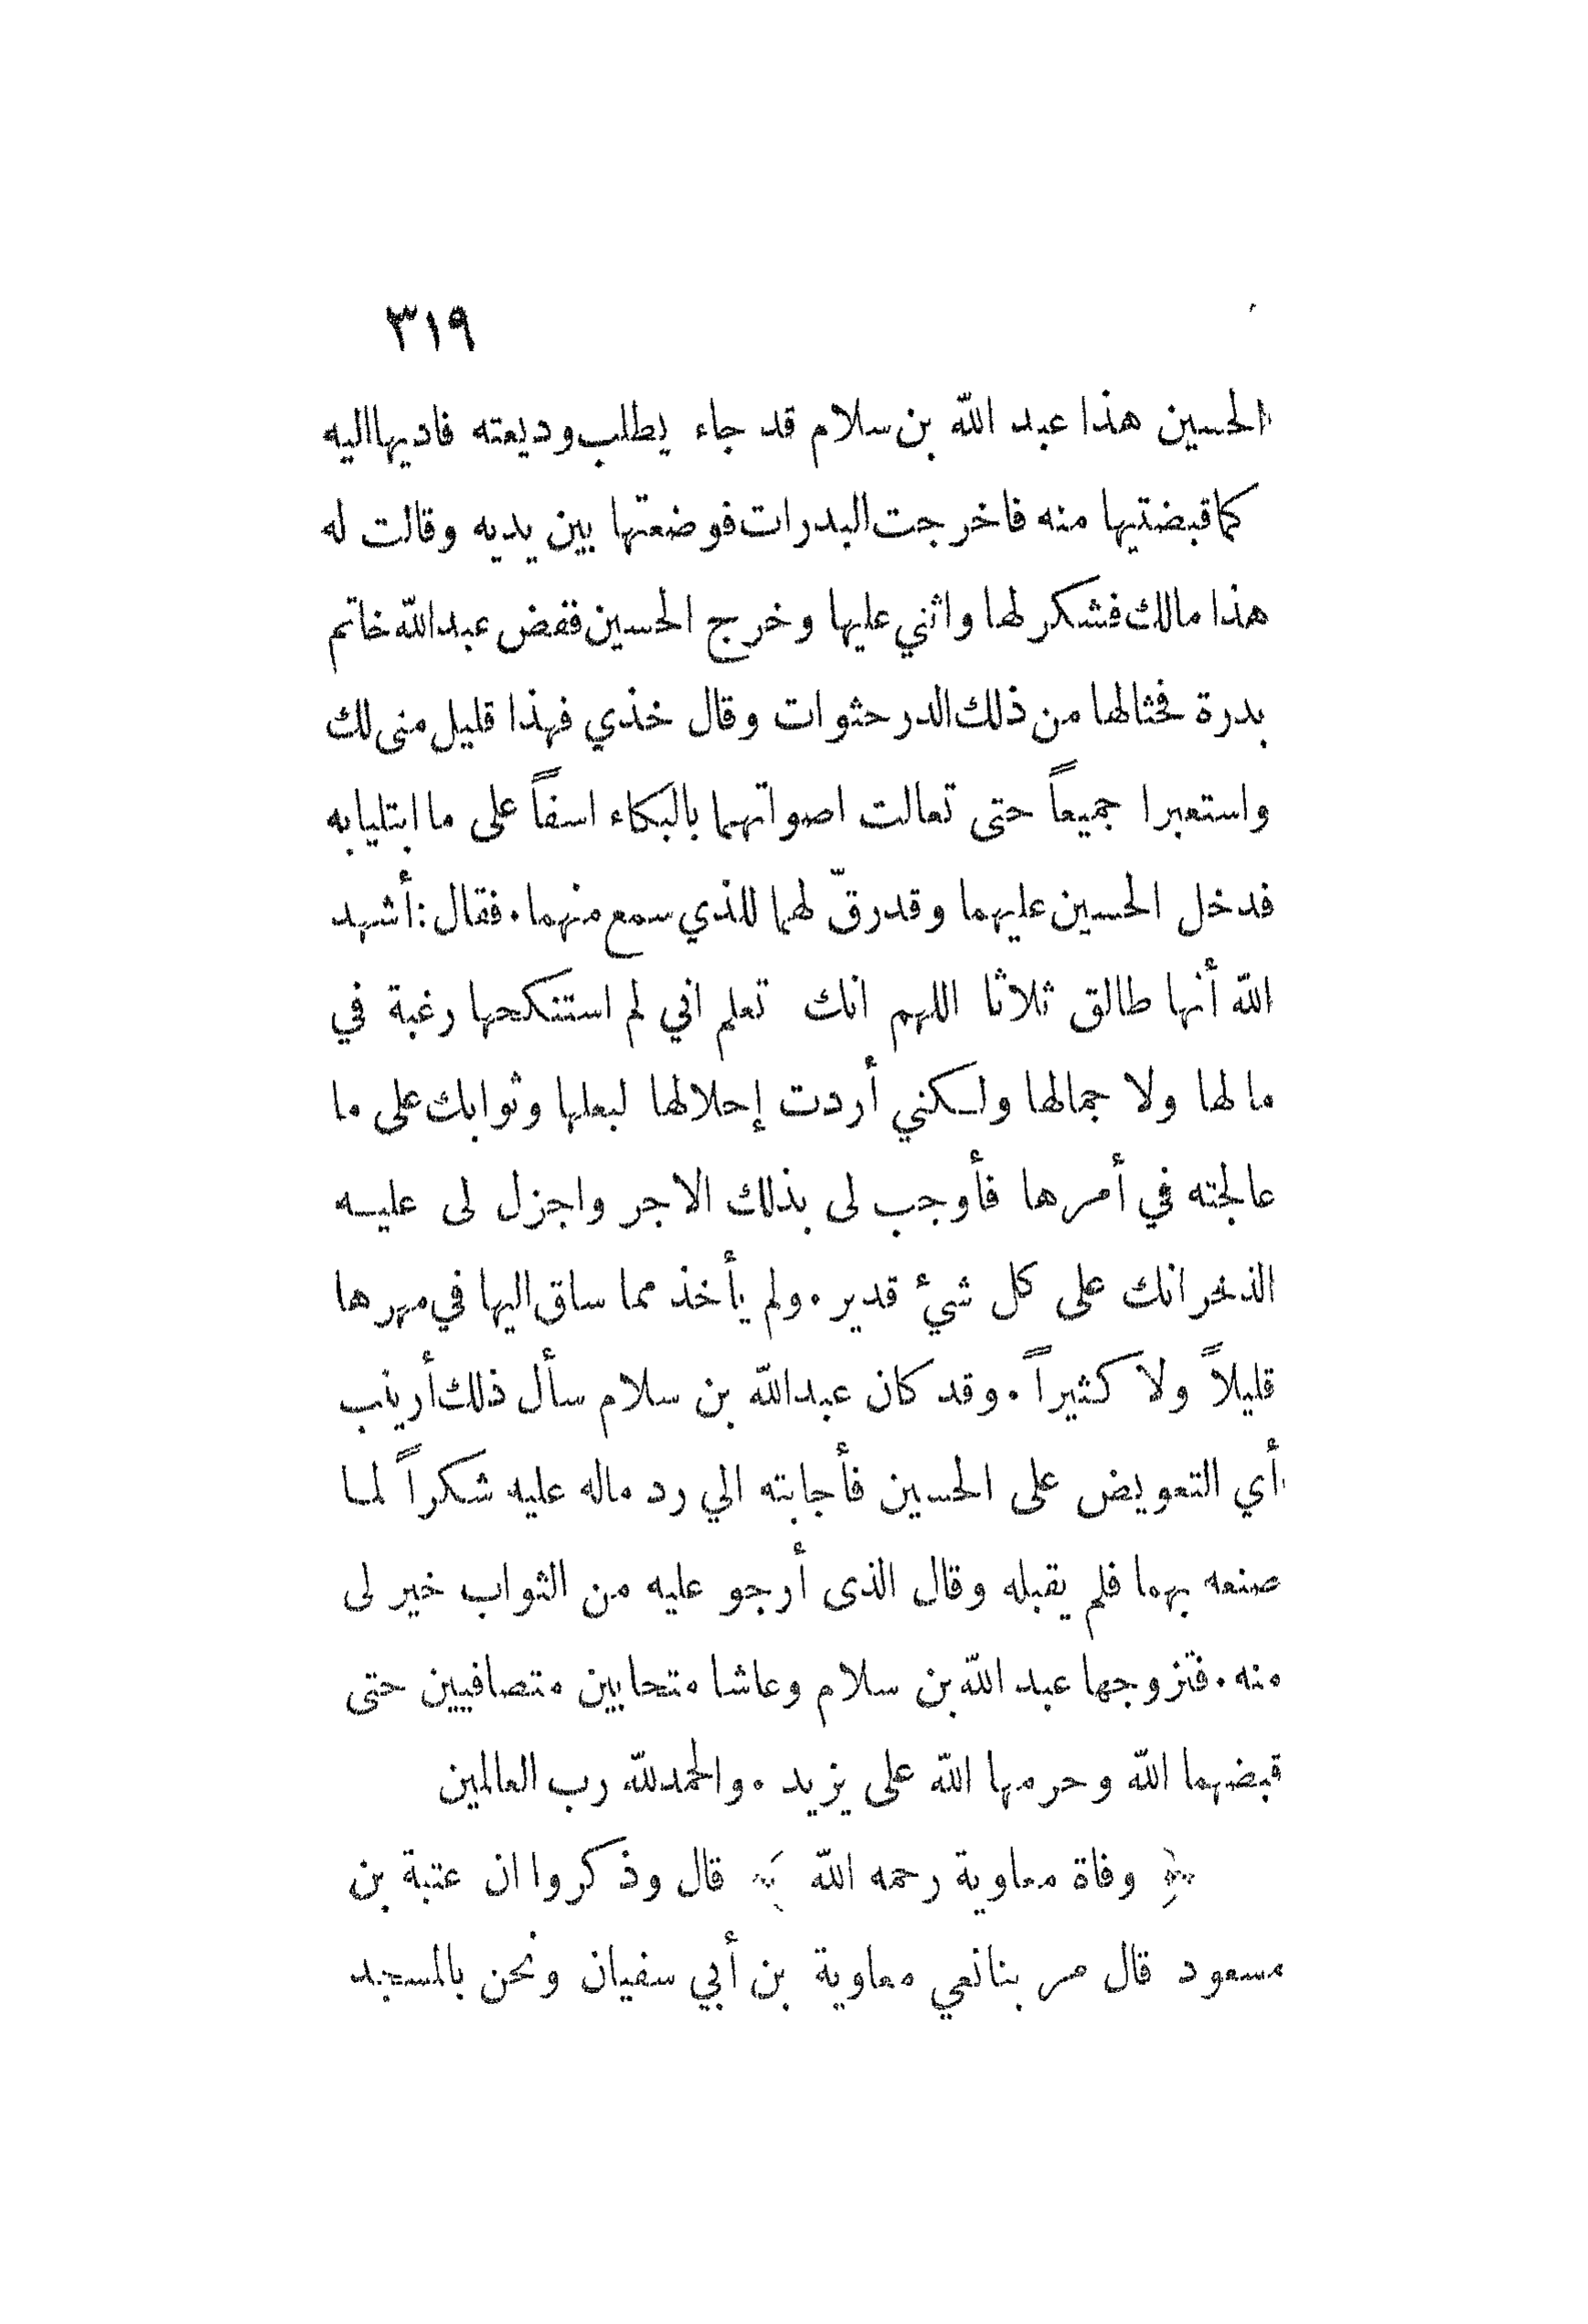 ٣١٩
الحسين هذا عبد الله بن سلام قد جاء يطلب وديعته فاديها اليه
كما قبضتيها منه فاخرجت البدرات فوضعتها بين يديه وقالت له
هذا مالك فشكر لها واثني عليها وخرج الحسين ففض عبدالله خاتم
بدرة فحثالها من ذلك الدر حثوات وقال خذي فهذا قليل منى لك
واستعبرا جميعاً حتى تعالت اصواتهما بالبكاء اسفاً على ما ابتليا به
فدخل الحسين عليهما وقد رقّ لهما للذي سمع منهما . فقال : أشهد
الله أنها طالق ثلاثا اللهم انك تعلم اني لم استنكحها رغبة في
مالها ولا جمالها ولكني أردت إحلالها لبعلها وثوابك على ما
عالجته في أمرها فأوجب لى بذلك الاجر واجزل لى عليه
الذخر انك على كل شيء قدير . ولم يأخذ مما ساق اليها في مهرها
قليلاً ولا كثيراً . وقد كان عبدالله بن سلام سأل ذلك أرينب
أي التعويض على الحسين فأجابته الي رد ماله عليه شكراً لما
صنعه بهما فلم يقبله وقال الذى أرجو عليه من الثواب خير لى
منه . فتزوجها عبد الله بن سلام وعاشا متحابين متصافيين حتى
قبضهما الله وحرمها الله على يزيد . والحمد لله رب العالمين
﴿ وفاة معاوية رحمه الله ﴾ قال وذكروا ان عتبة بن
مسعود قال مر بنا نعي معاوية بن أبي سفيان ونحن بالمسجد